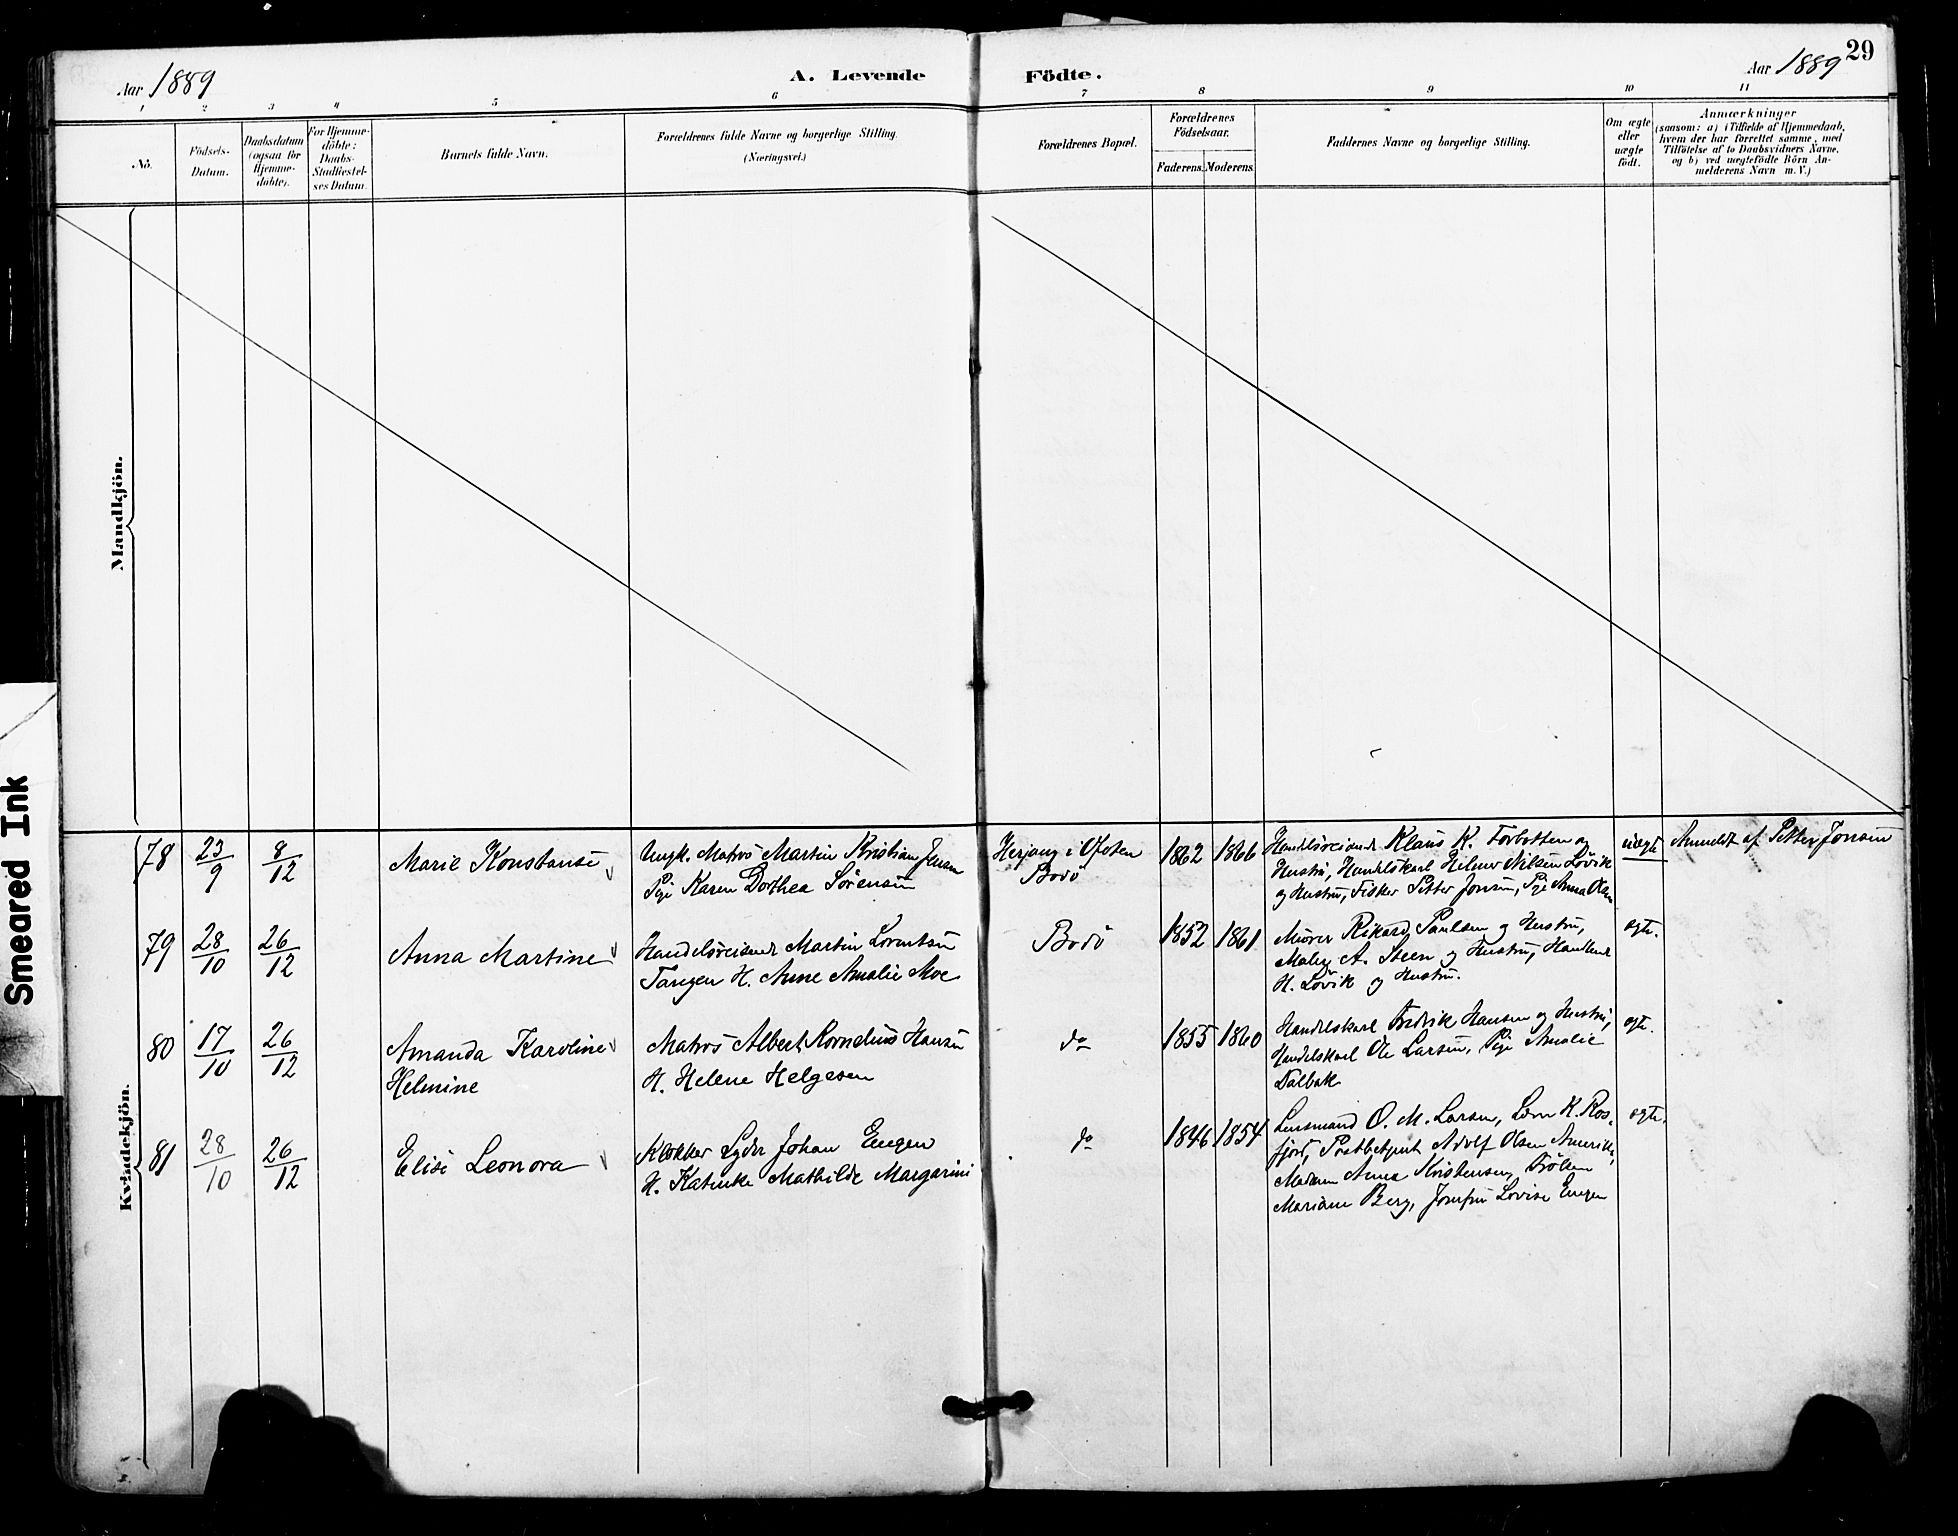 29
Aar 1889
A. Levende Födte.
Aar 1889
1 2 3 4 5 6 7 8 9 10 11
No.
Födsels-
Datum.
Daabsdatum
(ogsaa for
Hjemme-
döbte).
For Hjemme-
döbte:
Daabs-
Stadfæstel-
ses Datum.
Barnets fulde Navn.
Forældrenes fulde Navne og borgerlige Stilling.
(Næringsvei.)
Forældrenes Bopæl.
Forældrenes
Födselsaar.
Faderens. Moderens.
Faddernes Navne og borgerlige Stilling.
Om ægte
eller
uægte
födt.
Anmærkninger
(saasom: a) i Tilfælde af Hjemmedaab,
hvem der har forrettet samme, med
Tilföielse af to Daabsvidners Navne,
og b) ved uegtefödte Börn An-
melderens Navn m. V.)
Mandkjön.
Kvindekjön.
78
23/9
8/12
Marie Konstanse
Ungk. Matros Martin Kristian Jensen
Pige Karen Dorthea Sörensen
Herjang i Ofoten
Bodö
1862 1866
Handelsreisende Klaus K. Forbotten og
Hustru, Handelskarl Helmer Nilsen Lövik
og Hustru, Fisker Petter Jonsen, Pige Anna Olsen
uægte
Anmeldt af Petter Jonsen
79
28/10
26/12
Anna Martine
Handelsreisende Martin Lorentsen
Tangen H. Anne Amalie Moe
Bodö
1852 1861
Murer Rikard Paulsen og Hustru,
Maler A. Steen og Hustru,
H. Lövik og Hustru.
egte.
80
17/10
26/12
Amanda Karoline
Helmine
Matros Albert Kornelius Hansen
H. Helene Helgesen
do
1855 1860
Handelskarl Fredrik Hansen og Hustru,
Handelskarl Ole Larsen, Pige Amalie
Dalbak
egte.
81
28/10
26/12
Elise Leonora
Klokker Lyder Johan Engen
H. Katinka Mathilde Margarini
do
1846 1854
Lensmand O. M. Larsen, Lærer K. Ros-
fjord, Postbetjent Adolf Olsen
Madam Anna Kristensen, Fröken
Mariane Berg, Jomfru Lovise Engen
egte.
Smeared Ink